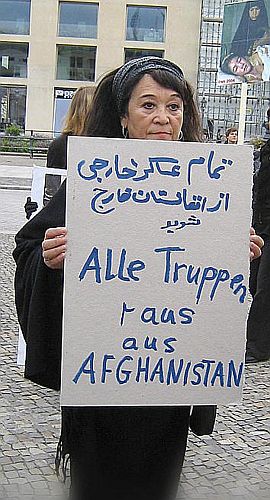 تمام عسکر خارجی
از افغانستان خارج
شوید
Alle Truppen
raus
aus
AFGHANISTAN